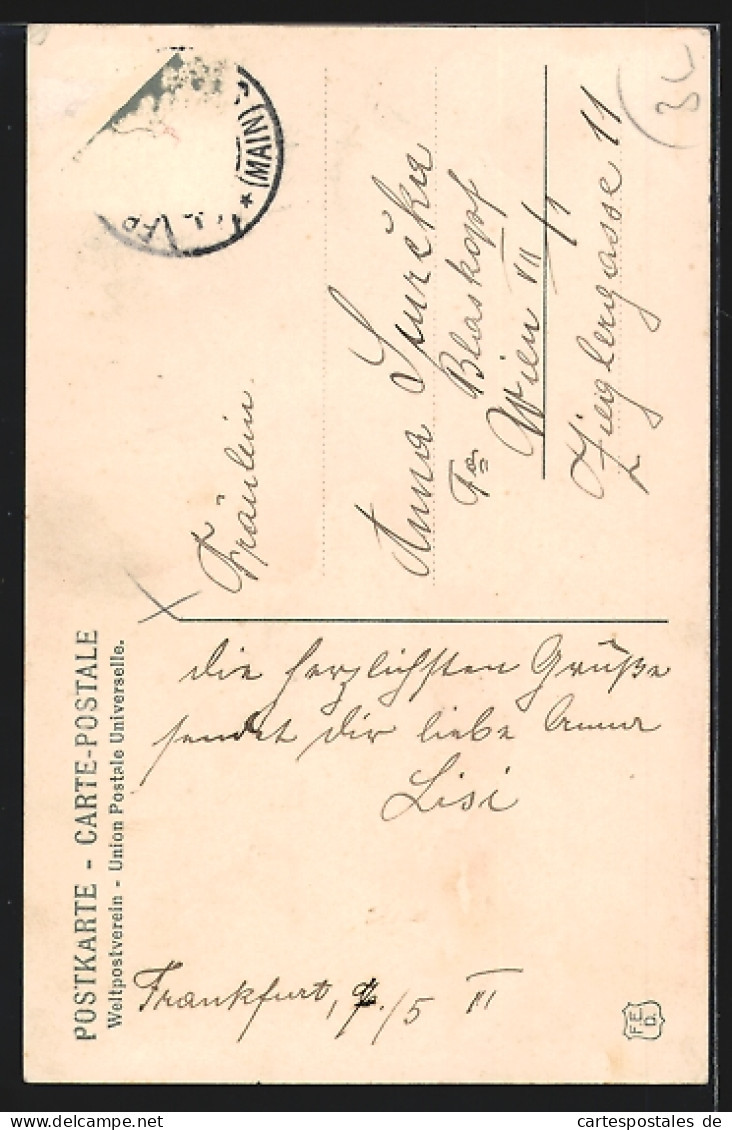 POSTKARTE - CARTE-POSTALE
Weltpostverein - Union Postale Universelle.
(MAIN)
Fräulein
Anna
Fa Blaskopf
Wien VII/1
Zieglergasse 11
die herzlichsten Grüße
sendet dir liebe Anna
Lisi
Frankfurt, /5 III
F.E.D.
cartespostales de